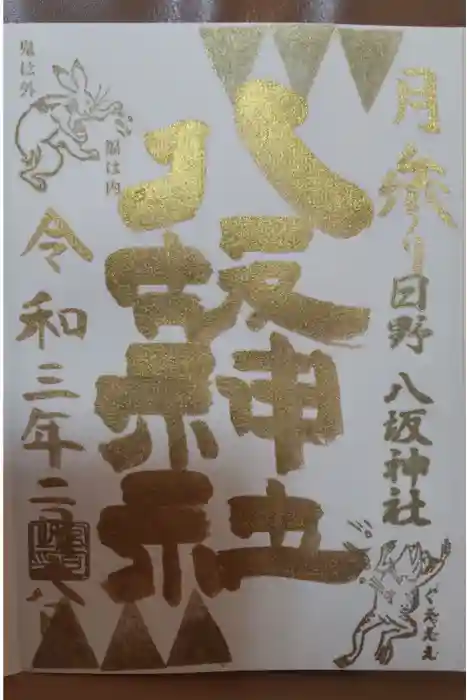 月参り 日野 八坂神社
八坂神社
鬼は外
福は内
令和三年二月八日